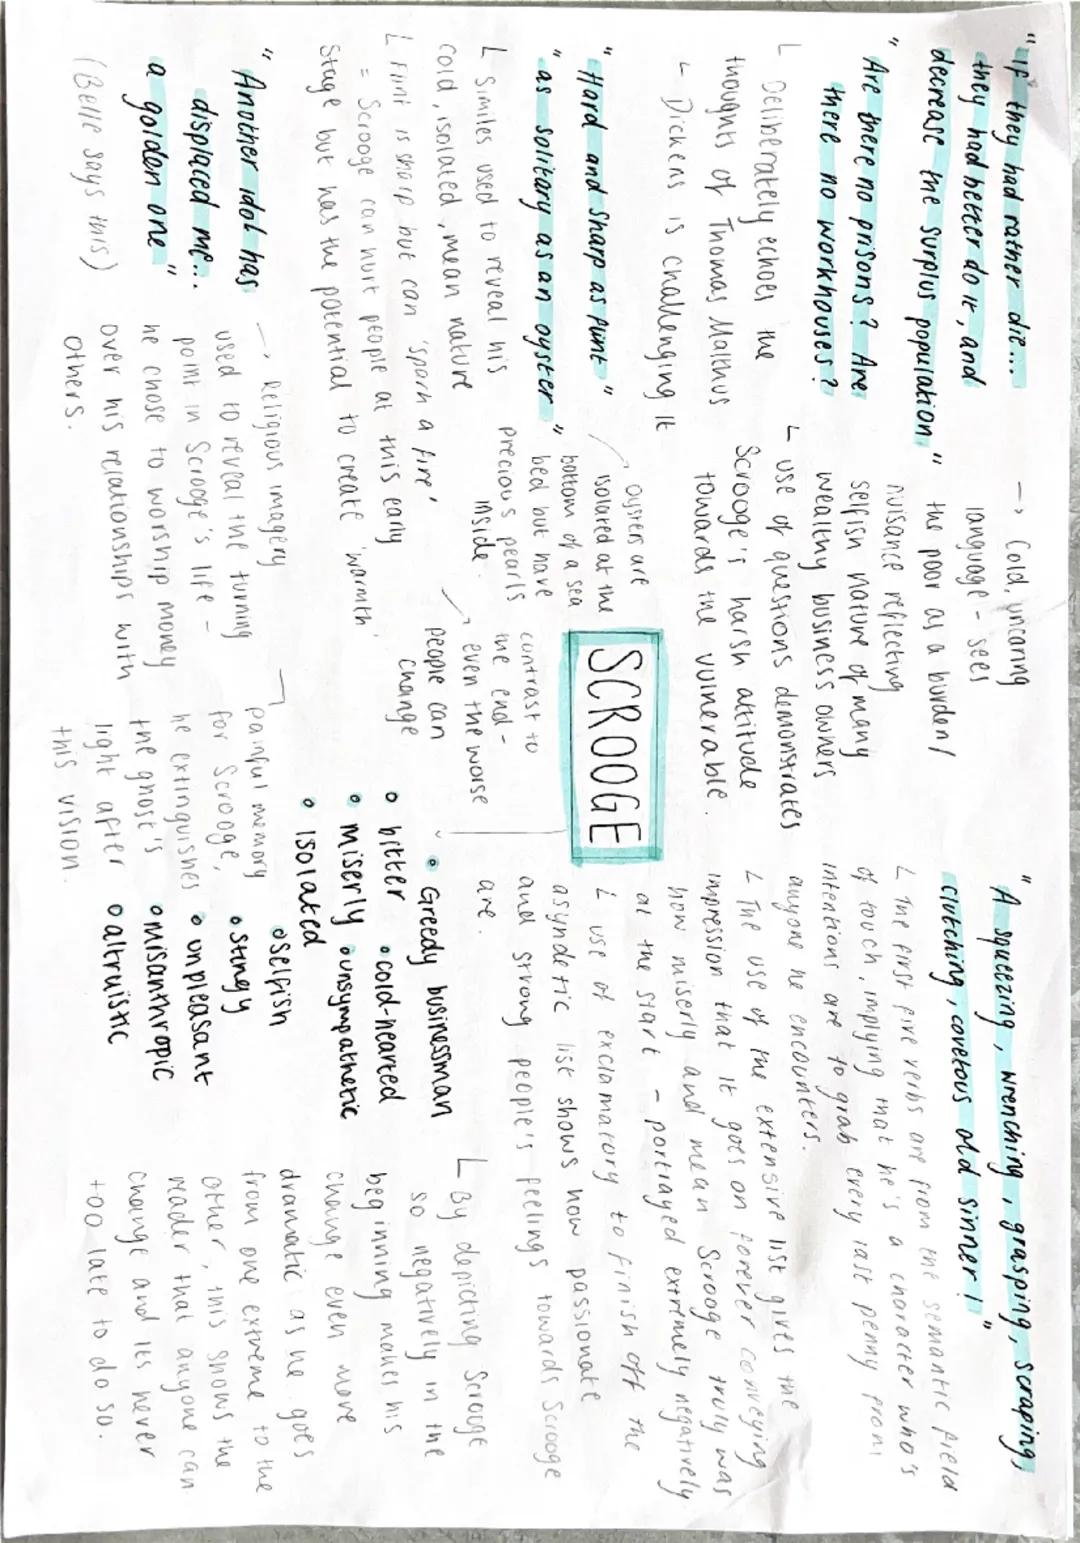 "If they had rather die...
they had better do it, and
decrease the surplus population"
"Are there no prisons? Are
there no workhouses?
L Deliberately echoes the
thoughts of Thomas Malthus
L Dickens is challenging it
→ Cold, uncaring
language - sees
the poor as a burden/
nuisance reflecting
selfish nature of many
wealthy business owners
L use of questions demonstrates
Scrooge's harsh attitude
towards the vulnerable.
"A squeezing, wrenching, grasping, scraping,
clutching, covetous old sinner!"
L The first five verbs are from the semantic field
of touch, implying that he's a character who's
intentions are to grab every last penny from
anyone he encounters.
L The use of the extensive list gives the
impression that it goes on forever conveying
how miserly and mean Scrooge truly was
at the start - portrayed extremely negatively
L use of exclamatory to finish off the
asyndetic list shows how passionate
and strong people's feelings towards Scrooge
are.
"Hard and sharp as flint"
"as solitary as an oyster"
L Similes used to reveal his
cold, isolated, mean nature
L Flint is sharp but can 'spark a fire'
= Scrooge can hurt people at this early
stage but has the potential to create 'warmth'
oysters are
isolated at the
bottom of a sea
bed but have
precious pearls
inside.
SCROOGE
contrast to
the end -
even the worse
people can
change
• Greedy businessman
• bitter • cold-hearted
• miserly • unsympathetic
• isolated
• selfish
• stingy
• unpleasant
• misanthropic
• altruistic
L By depicting Scrooge
so negatively in the
beginning makes his
change even more
dramatic as he goes
from one extreme to the
other, this shows the
reader that anyone can
change and its never
too late to do so.
"Another idol has
displaced me...
a golden one"
(Belle says this)
→ Religious imagery
used to reveal the turning
point in Scrooge's life -
he chose to worship money
over his relationships with
others.
painful memory
for Scrooge,
he extinguishes
the ghost's
light after
this vision.